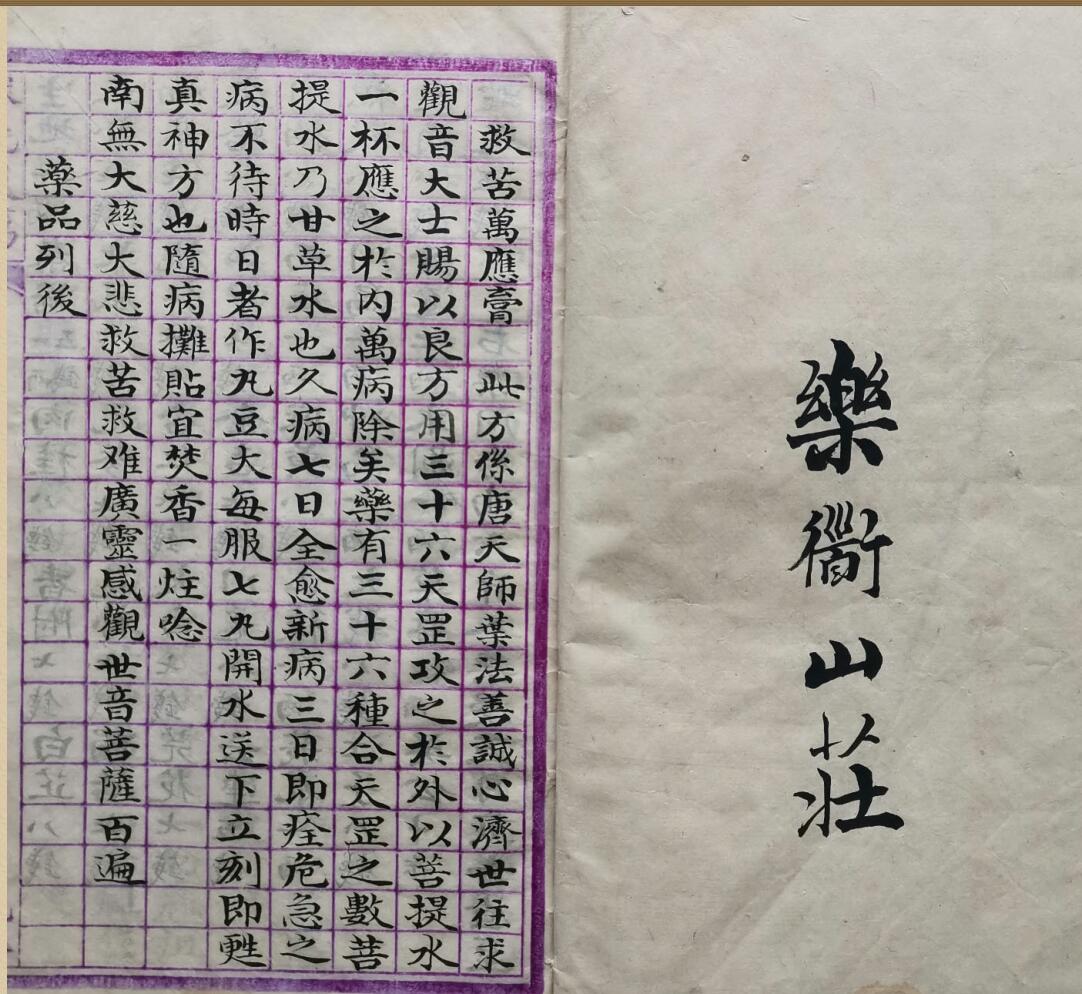 樂衢山莊
救苦萬應膏 此方係唐天師葉法善誠心濟世往求
觀音大士賜以良方用三十六天罡攻之於外以菩提水
一杯應之於内萬病除矣藥有三十六種合天罡之數菩
提水乃甘草水也久病七日全愈新病三日即痊危急之
病不待時日者作丸豆大每服七丸開水送下立刻即甦
真神方也隨病攤貼宜焚香一炷唸
南無大慈大悲救苦救难廣靈感觀世音菩薩百遍
薬品列後